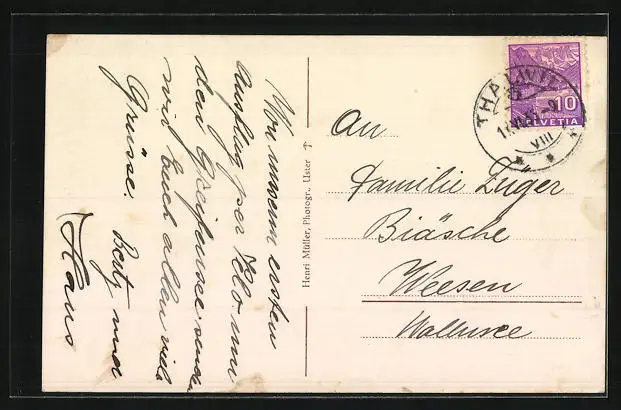 Von unserem ersten
Ausflug per Velo um
den Greifensee sende
wir Euch allen viele
Grüsse. Berty und
Hans
Henri Müller, Photogr., Uster
An
Familie Zuger
Biäsche
Weesen
Wallensee
THALWIL
VIII
10
HELVETIA